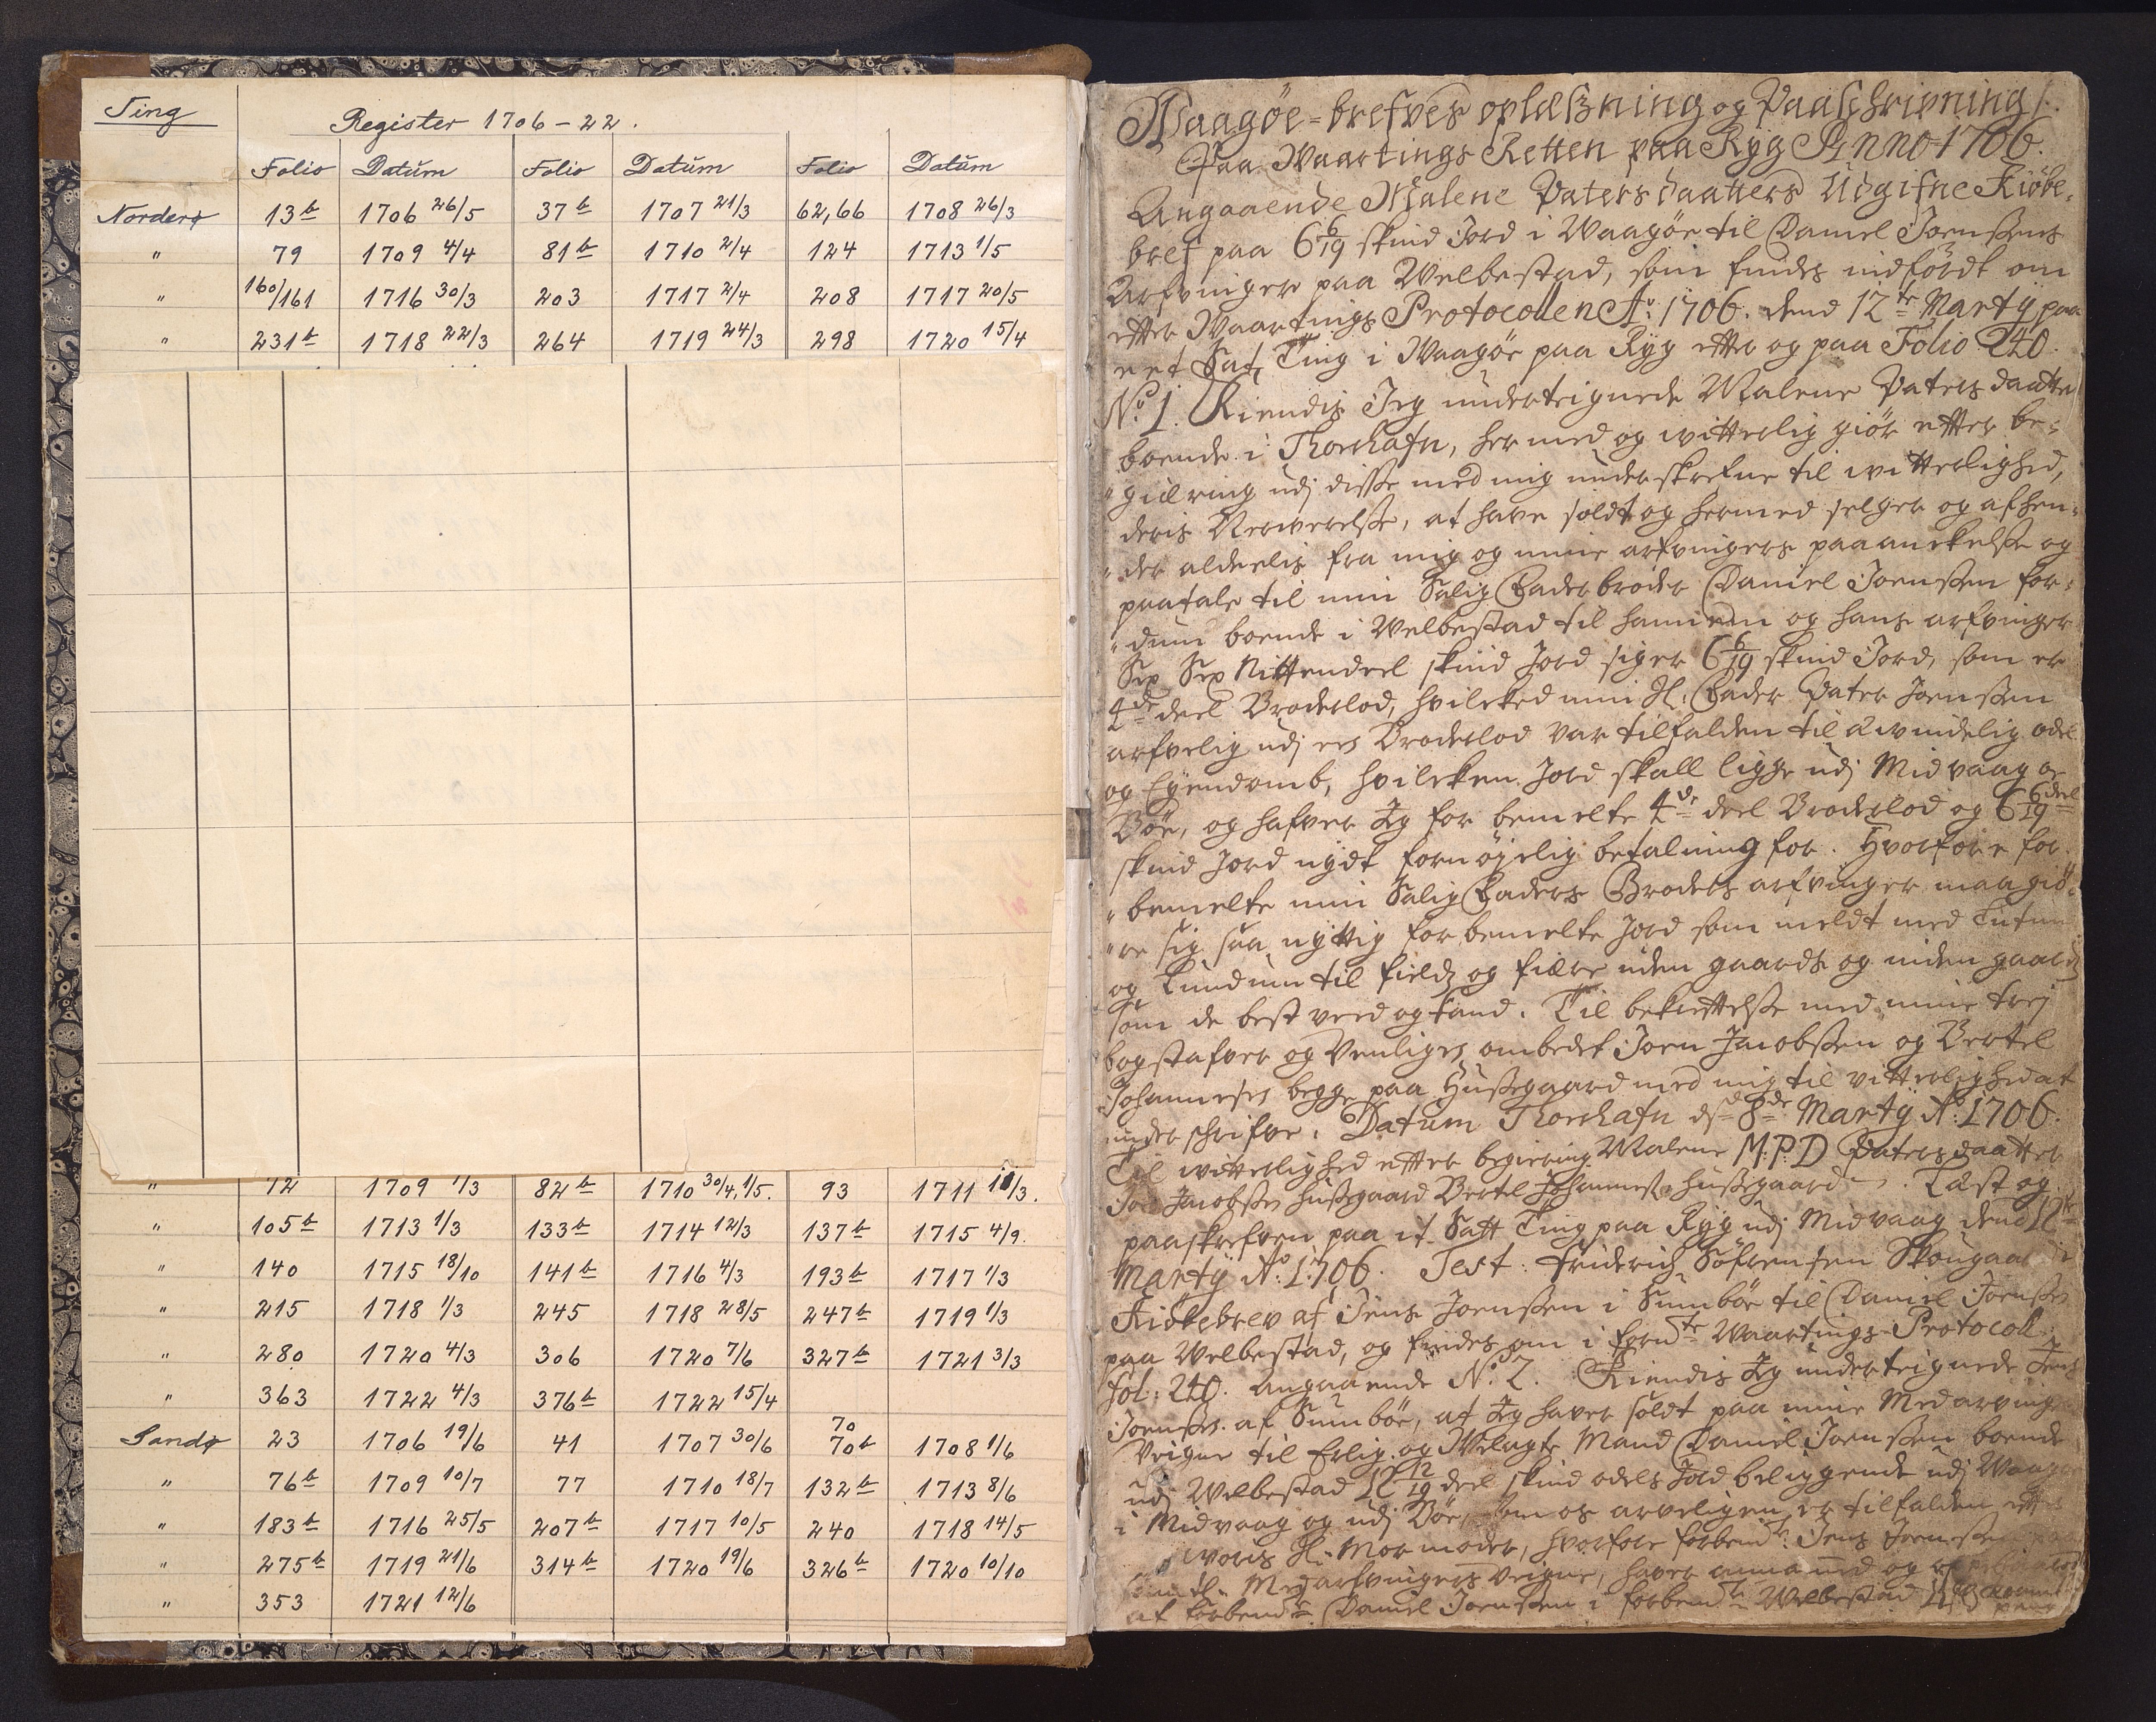 Ting
Register 1706 - 22.
Folio Datum Folio Datum Folio Datum
Norderø 13 b 1706 26/5 37 b 1707 21/3 62,66 1708 26/3
" 79 1709 4/4 81 b 1710 2/4 124 1713 1/5
" 160/161 1716 30/3 203 1717 2/4 208 1717 20/5
" 231 b 1718 22/3 264 1719 24/3 298 1720 15/4
" 72 1709 1/3 82 b 1710 30/4, 1/5. 93 1711
" 105 b 1713 1/3 133 b 1714 12/3 137 b 1715 4/9.
" 140 1715 18/10 141 b 1716 4/3 193 b 1717 1/3
" 215 1718 1/3 245 1718 28/5 247 b 1719 1/3
" 280 1720 4/3 306 1720 7/6 327 b 1721 3/3
" 363 1722 4/3 376 b 1722 15/4
Sandø 23 1706 19/6 41 1707 30/6 70 70 b 1708 1/6
" 76 b 1709 10/7 77 1710 18/7 132 b 1713 8/6
" 183 b 1716 25/5 207 b 1717 10/5 240 1718 14/5
" 275 b 1719 21/6 314 b 1720 19/6 326 b 1720 10/10
" 353 1721 12/6
Waagöe=brefves oplæsning og Paaschrivning
Paa Waartings Retten paa Ryg Anno 1706.
Angaaende Malene Paters daatters Udgifne Kiöbe=
bref paa 6 6/19 skind Jord i Waagöe til Daniel Joenssens
Arfvinger paa Welbestad, som findes indfördt om
etter Waartings Protocollen Ao: 1706. dend 12te Marty paa
eet Satt Ting i Waagöe paa Ryg etter og paa Folio 240.
No 1. Kiendis Jeg undertegnede Malene Paters daatter
boende i Thorshafn, her med og witterlig giör etter be=
giæring udj disse med mig underskrefne til witterlighed,
deris Nerwerelse, at have soldt og hermed selger og afhen=
der aldeelis fra mig og mine arfvingers paaanckelse og
paatale til min Salig Faderbroder Daniel Joenssen for=
dum boende i Welbestad til hannem og hans arfvinger
Sex Sex Nittendeel skind Jord siger 6 6/19 skind Jord, som er
4de deel Broderlod, hvilcked min Sl: Fader Pater Joenssen
arfvelig udj ees Broderlod var tilfalden til Ævindelig odel
og Eyendomb, hvilcken Jord skall ligge udj Midvaag oc
Böe, og hafver Jeg for bemelte 4de deel Broderlod og 6 6/19 deel
skind Jord nydt fornöjelig betalning for. Hvorfore for=
bemelte min Salig Faders Broders arfvinger maa giö=
re sig saa nyttig forbemelte Jord som meldt med Lutum
og Lundum til fields og fiære uden gaards og inden gaards
som de best veed og kand. Til bekreftelse med mine trej
bogstafver og Venligen ombedet Joen Jacobssen og Bertel
Johannesen begge paa Hussegaard med mig til vitterlighed at
underschrifve. Datum Thorshafn dend 8de Marty Ao: 1706.
Til witterlighed etter begiering Malene M:P:D Patersdaatter
Joen Jacobssen Hussegaard Bertel Johannesen Hussegaard. Læst og
paaskrefven paa it Satt Ting paa Ryg udj Midvaag dend 12te
Marty Ao: 1706. Test: Friderich Söfrensen Skougaard
Kiöbebrev af Jens Joenssen i Sumböe til Daniel Joenssen
paa Welbestad, og findes om i forn:te Waartings-Protocoll
fol: 240. angaaende No: 2. Kiendis Jeg undertegnede Jens
Joenssen af Sumböe, at Jeg haver soldt paa mine Medarvingers
Veigne til Erlig og Velagte Mand Daniel Joenssen boende
udj Welbestad 12 12/19 deel skind odels Jord beliggende udj Waagöe
i Midvaag og udj Böe, som os arveligen er tilfalden etter
voris Sl: Mormoder, hvorfore forbem:te Jens Joenssen
Medarfvingers veigne, haver annammed og
af forbem:te Daniel Joenssen i forbem:te Welbestad